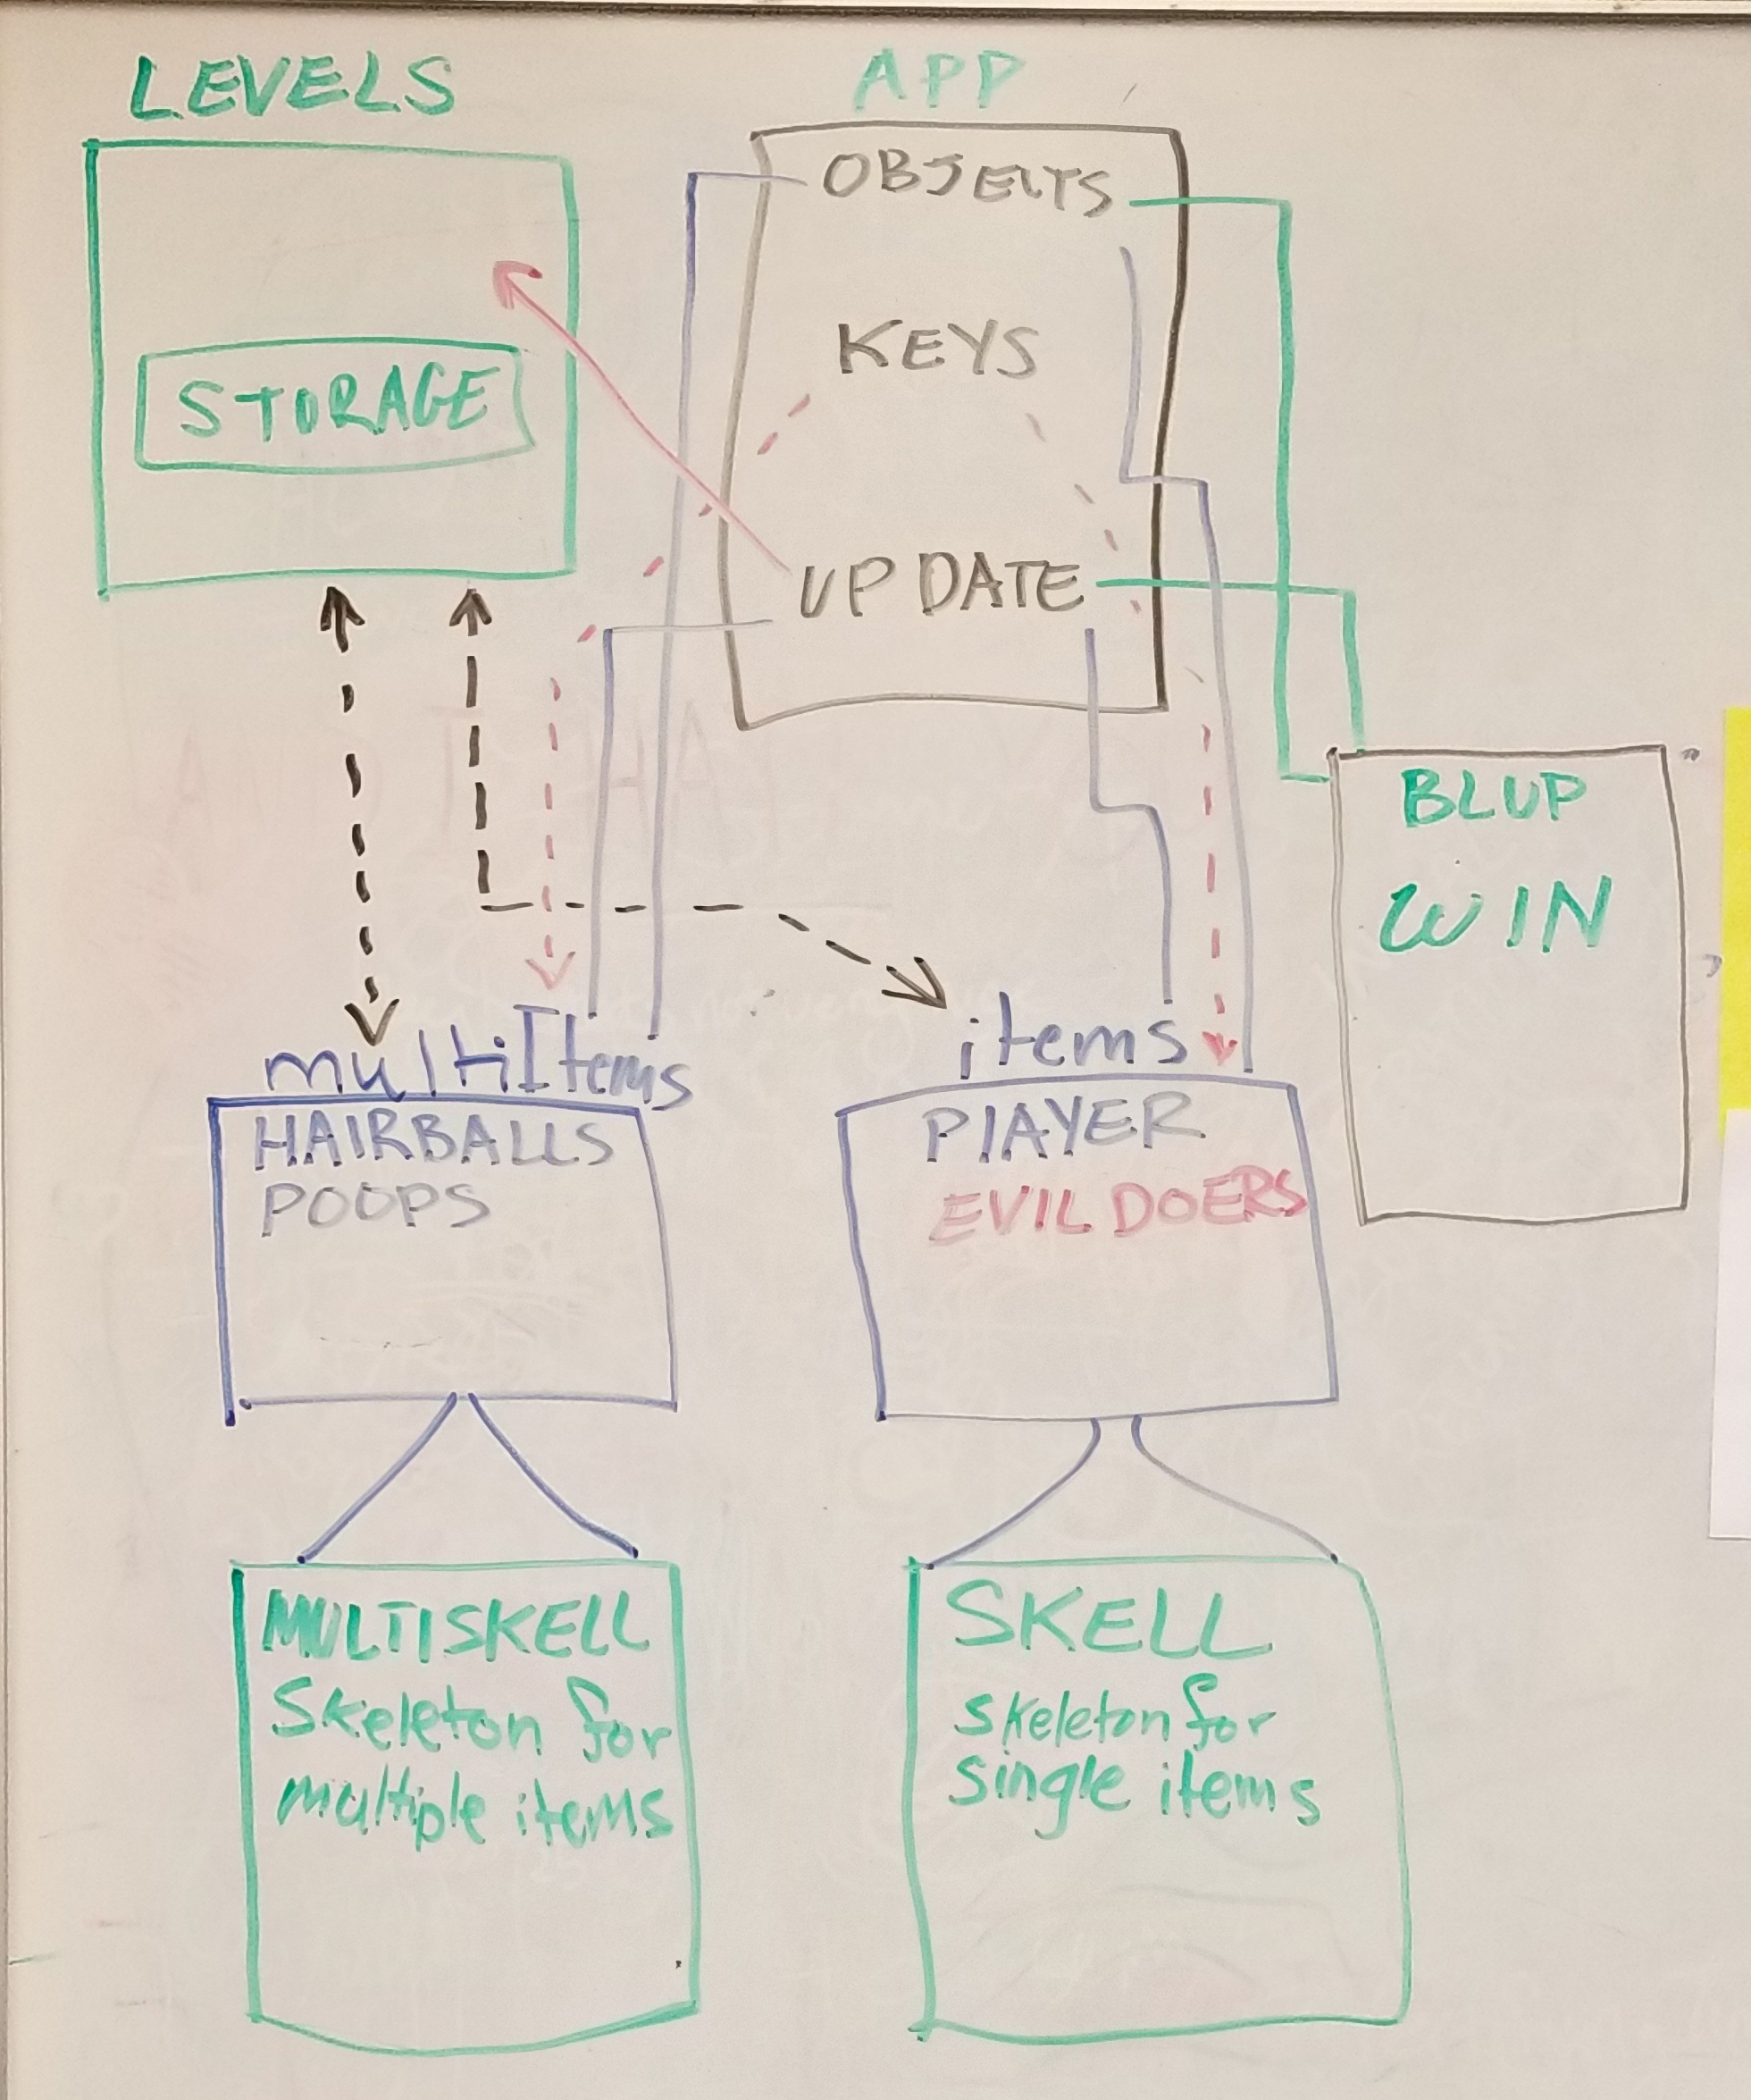 LEVELS
APP
OBJECTS
KEYS
STORAGE
UPDATE
BLUP
WIN
multiItems
items
HAIRBALLS
POOPS
PlAYER
EVIL DOERS
MULTISKELL
Skeleton for
multiple items
SKELL
skeleton for
single items